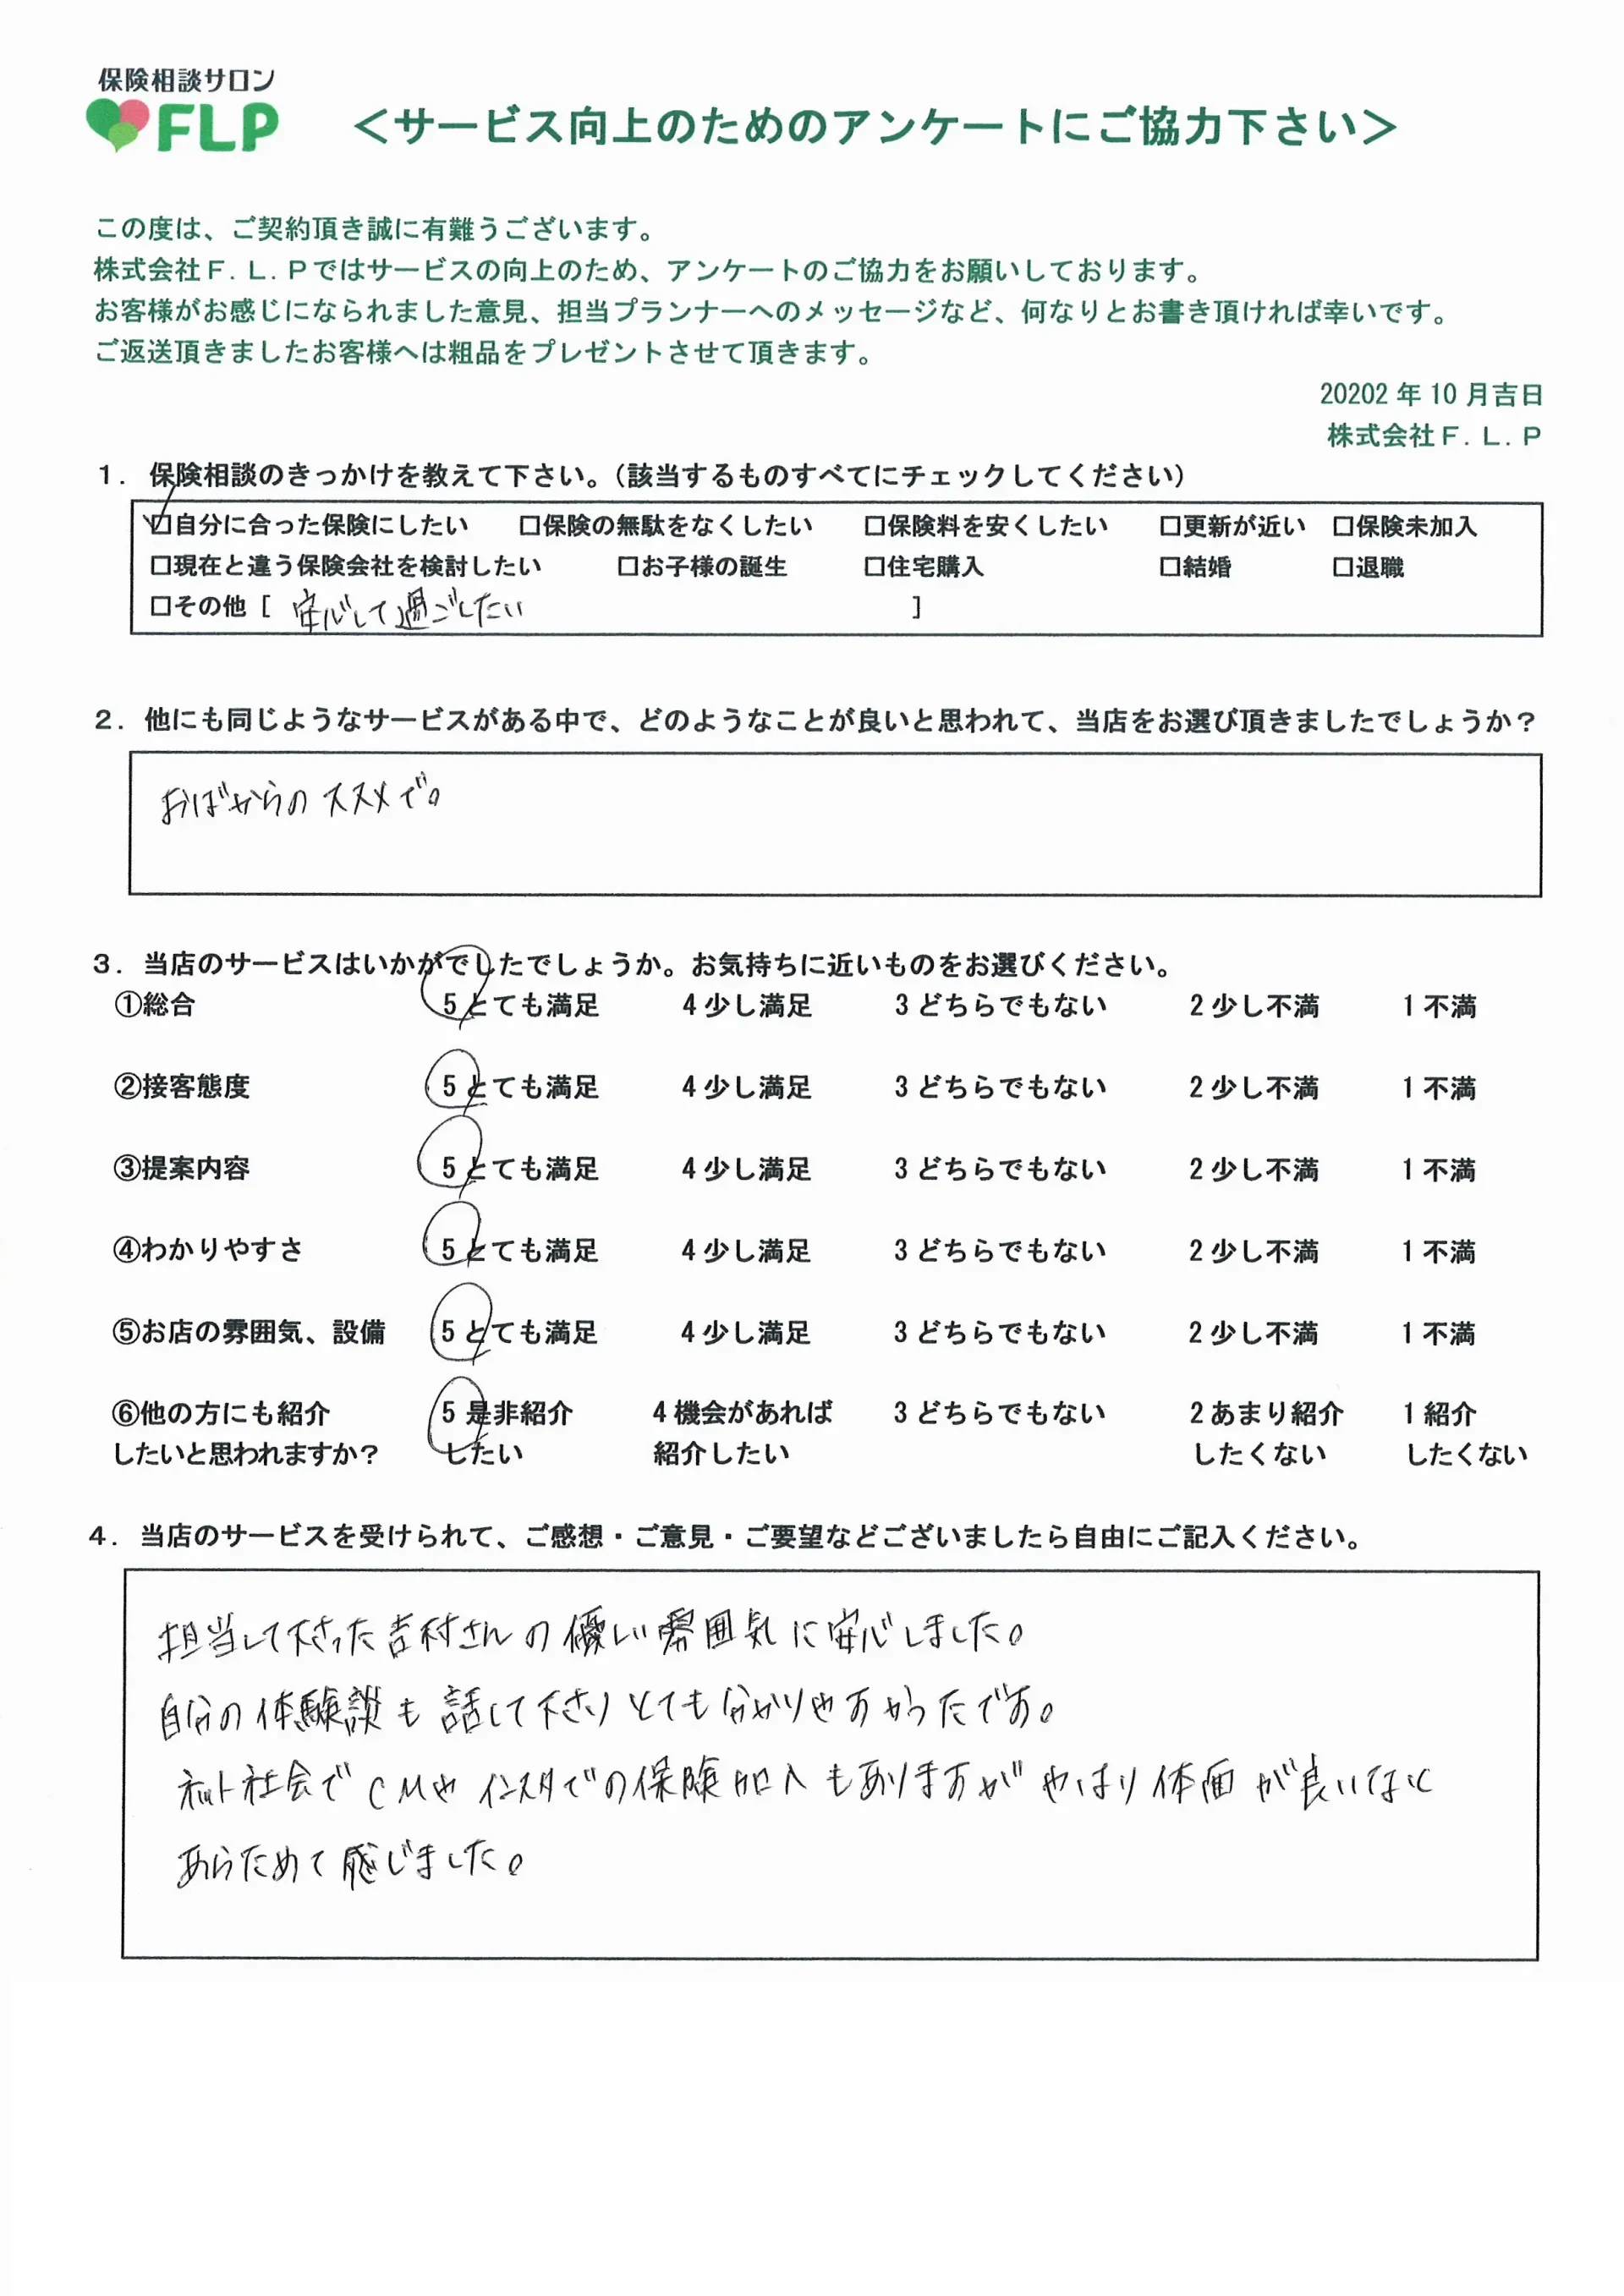 保険相談サロン
FLP
＜サービス向上のためのアンケートにご協力下さい＞
この度は、ご契約頂き誠に有難うございます。
株式会社Ｆ.Ｌ.Ｐではサービスの向上のため、アンケートのご協力をお願いしております。
お客様がお感じになられました意見、担当プランナーへのメッセージなど、何なりとお書き頂ければ幸いです。
ご返送頂きましたお客様へは粗品をプレゼントさせて頂きます。
20202 年 10 月吉日
株式会社Ｆ.Ｌ.Ｐ
１．保険相談のきっかけを教えて下さい。（該当するものすべてにチェックしてください）
☑自分に合った保険にしたい □保険の無駄をなくしたい □保険料を安くしたい □更新が近い □保険未加入
□現在と違う保険会社を検討したい □お子様の誕生 □住宅購入 □結婚 □退職
□その他［ 安心して過ごしたい ］
２．他にも同じようなサービスがある中で、どのようなことが良いと思われて、当店をお選び頂きましたでしょうか？
おばからのススメで。
３．当店のサービスはいかがでしたでしょうか。お気持ちに近いものをお選びください。
①総合 5 とても満足 4 少し満足 3 どちらでもない 2 少し不満 1 不満
②接客態度 5 とても満足 4 少し満足 3 どちらでもない 2 少し不満 1 不満
③提案内容 5 とても満足 4 少し満足 3 どちらでもない 2 少し不満 1 不満
④わかりやすさ 5 とても満足 4 少し満足 3 どちらでもない 2 少し不満 1 不満
⑤お店の雰囲気、設備 5 とても満足 4 少し満足 3 どちらでもない 2 少し不満 1 不満
⑥他の方にも紹介 5 是非紹介 4 機会があれば 3 どちらでもない 2 あまり紹介 1 紹介
したいと思われますか？ したい 紹介したい したくない したくない
４．当店のサービスを受けられて、ご感想・ご意見・ご要望などございましたら自由にご記入ください。
担当して下さった吉村さんの優しい雰囲気に安心しました。
自分の体験談も話して下さりとても分かりやすかったです。
ネット社会でCMやインスタでの保険加入もありますがやはり体面が良いなと
あらためて感じました。